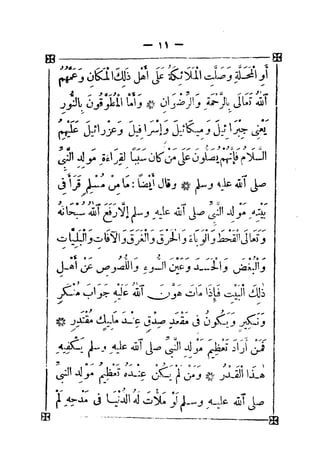 — ١١ —
أو المحلة وصلت الملائكة على أهل ذلك المكان وعمهم
الله تعالى بالرحمة والرضوان * وأما المطوقون بالنور
يعنى جبرائيل وميكائيل وإسرافيل وعزرائيل عليهم
السلام فإنهم يصلون على من كان سببا لقراءة مولد النبى
صلى الله عليه وسلم * وقال أيضا : مامن مسلم قرأ فى
بيته مولد النبى صلى الله عليه وسلم إلا رفع الله سبحانه
وتعالى القحط والوباء والحرق والغرق والآفات والبليات
والبغض والحسد وعين السوء واللصوص عن أهل
ذلك البيت فإذا مات هون الله عليه جواب منكر
ونكير ويكون فى مقعد صدق عند مليك مقتدر *
فمن أراد تعظيم مولد النبى صلى الله عليه وسلم يكفيه
هذا القدر * ومن لم يكن عنده تعظيم مولد النبى
صلى الله عليه وسلم لو ملأت له الدنيا فى مدحه لم